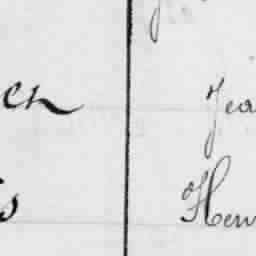 en Jea
s Hen